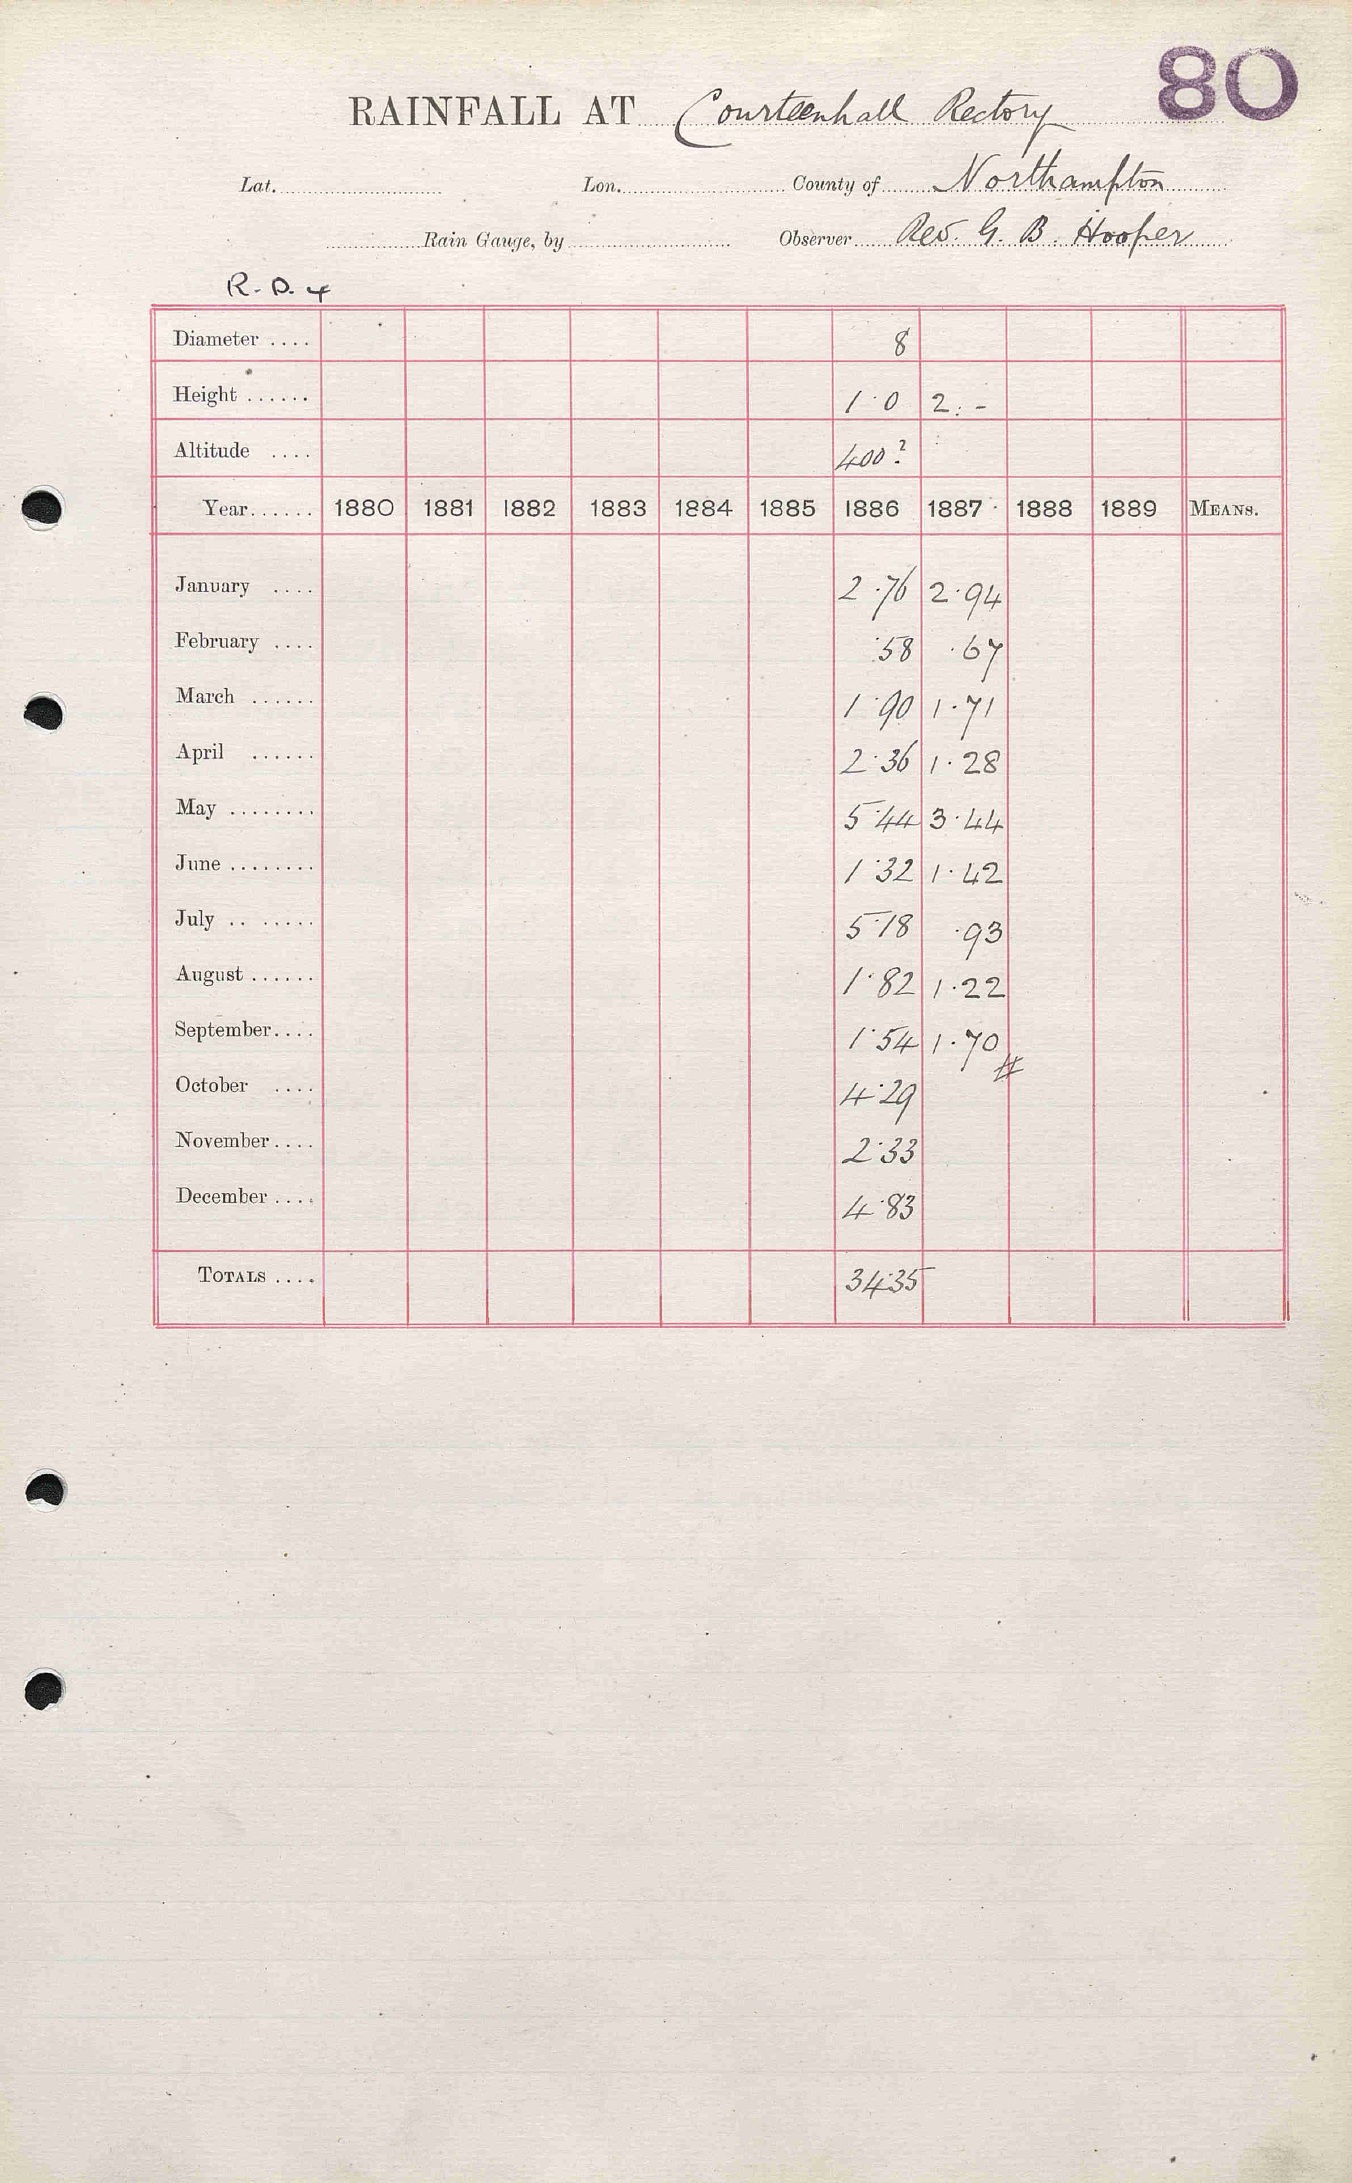 80
RAINFALL AT Courteenhall Rectory
Lat. Lon. County of Northampton
Rain Gauge, by Observer Rev. G. B. Hooper
R. D. 4
Diameter .... 8
Height ...... 1·0 2. -
Altitude .... 400?
Year...... 1880 1881 1882 1883 1884 1885 1886 1887 1888 1889 MEANS.
January .... 2·76 2·94
February .... ·58 ·67
March ...... 1·90 1·71
April ...... 2·36 1·28
May ........ 5·44 3·44
June ........ 1·32 1·42
July .. ...... 5·18 ·93
August ...... 1·82 1·22
September.... 1·54 1·70
October .... 4·29
November.... 2·33
December .... 4·83
TOTALS .... 34·35